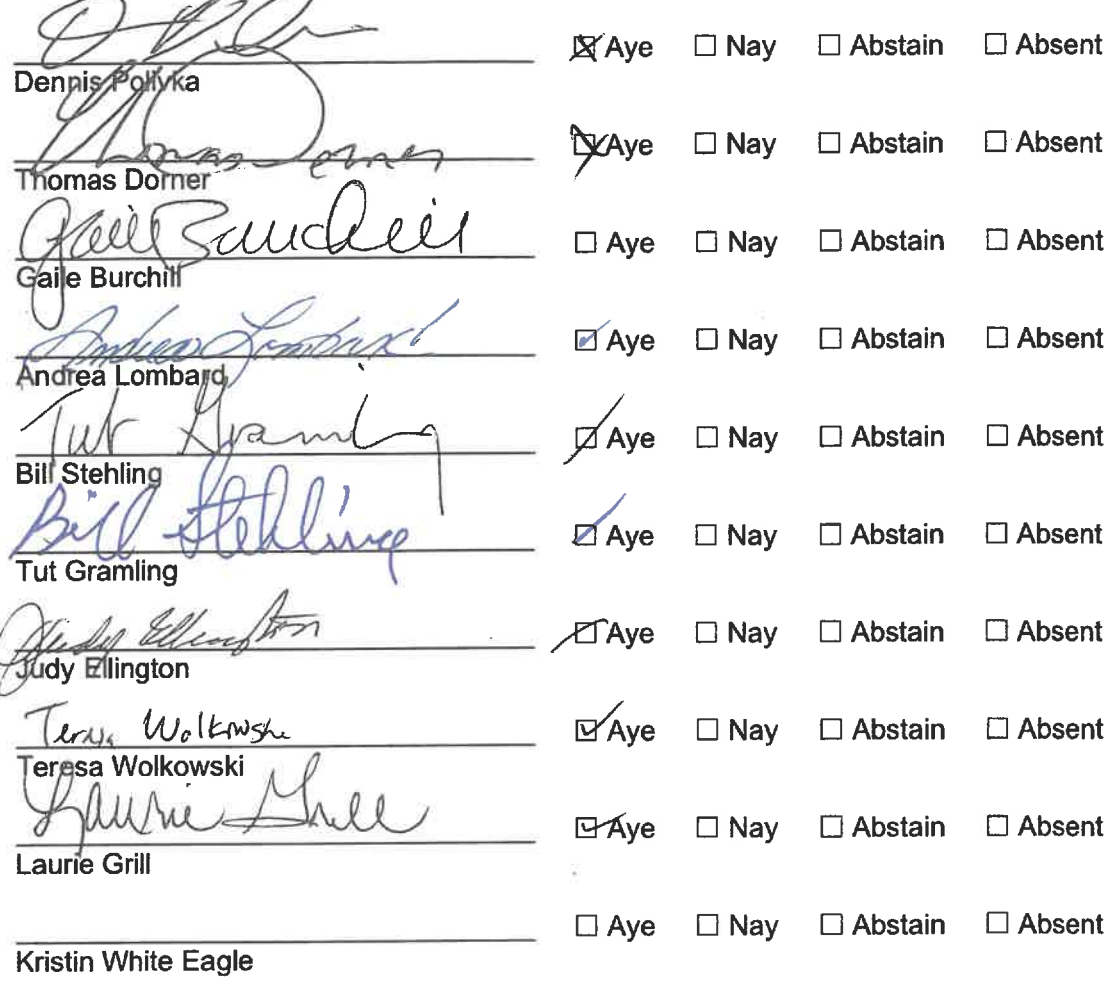 ☒ Aye ☐ Nay ☐ Abstain ☐ Absent
Dennis Polivka
Thomas Dorner ☒ Aye ☐ Nay ☐ Abstain ☐ Absent
Thomas Dorner
Gaile Burchill ☐ Aye ☐ Nay ☐ Abstain ☐ Absent
Gaile Burchill
Andrea Lombard ☑ Aye ☐ Nay ☐ Abstain ☐ Absent
Andrea Lombard
Tut Gramling ☑ Aye ☐ Nay ☐ Abstain ☐ Absent
Bill Stehling
Bill Stehling ☑ Aye ☐ Nay ☐ Abstain ☐ Absent
Tut Gramling
Judy Ellington ☑ Aye ☐ Nay ☐ Abstain ☐ Absent
Judy Ellington
Teresa Wolkowski ☑ Aye ☐ Nay ☐ Abstain ☐ Absent
Teresa Wolkowski
Laurie Grill ☑ Aye ☐ Nay ☐ Abstain ☐ Absent
Laurie Grill
☐ Aye ☐ Nay ☐ Abstain ☐ Absent
Kristin White Eagle